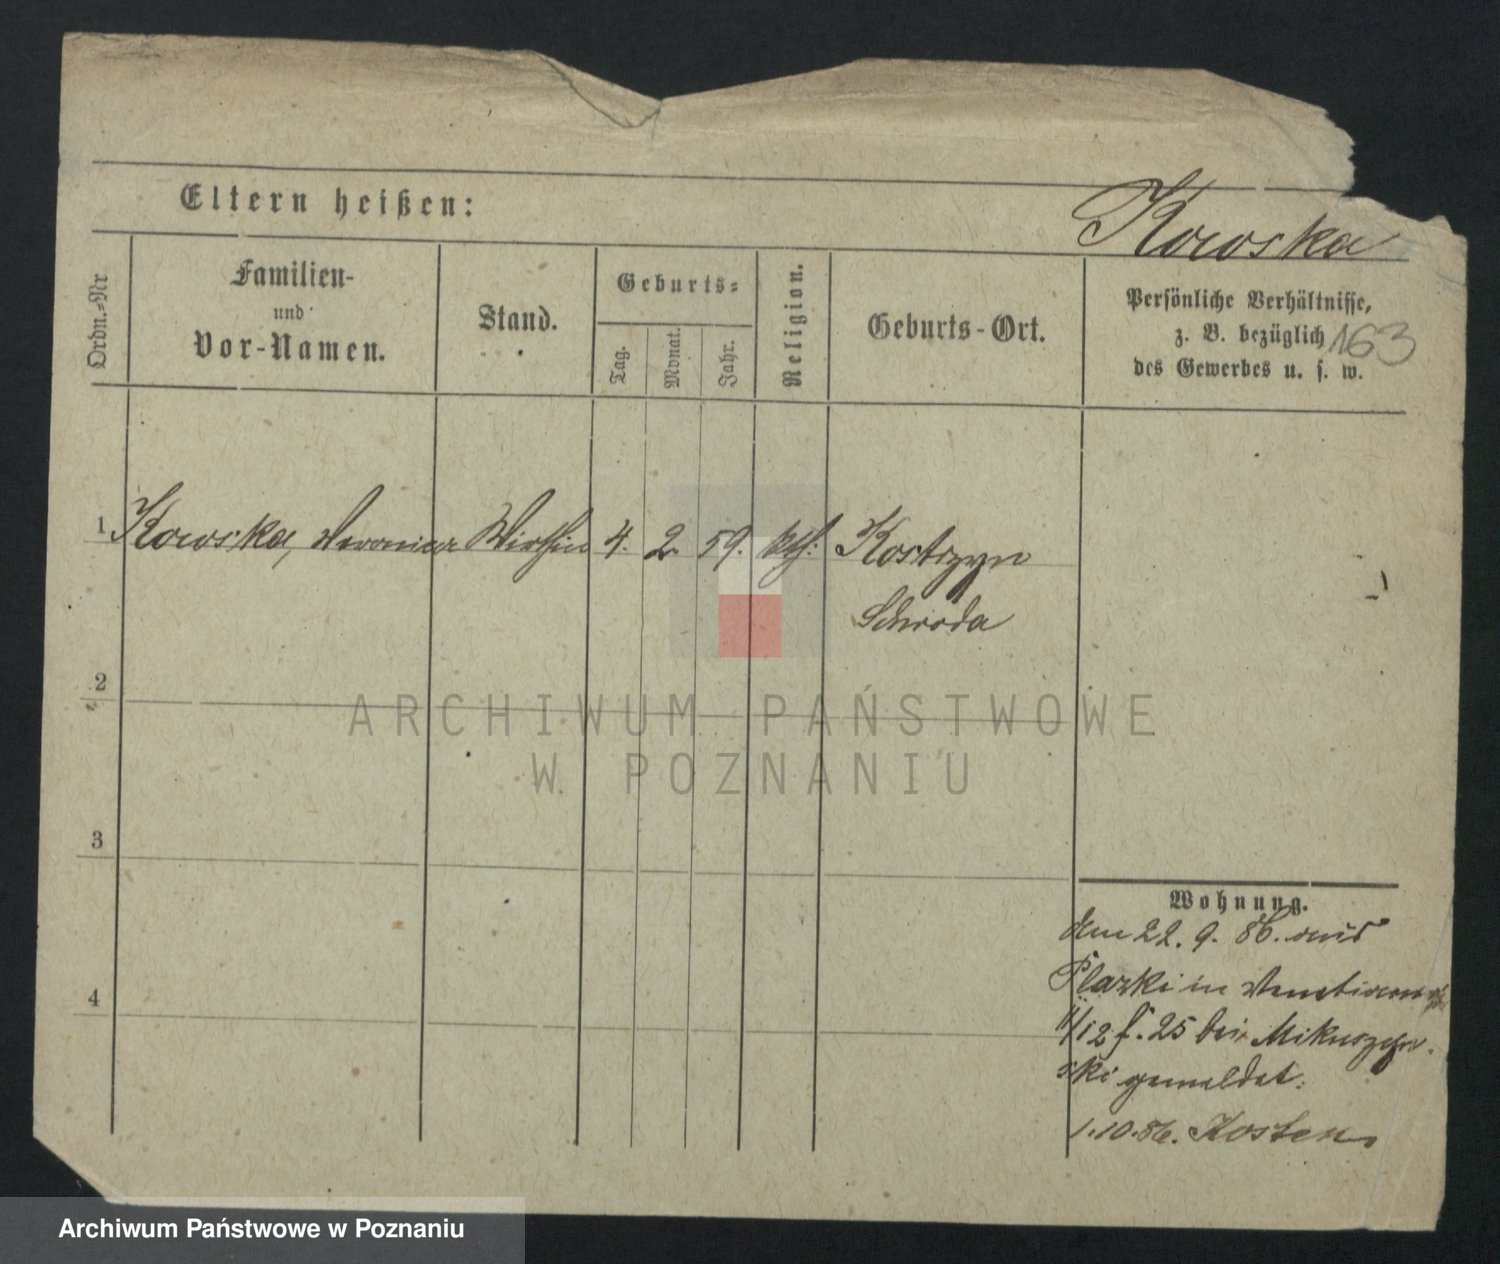 Eltern heißen:
Kowska
Ordn.-Nr
Familien-
und
Vor-Namen.
Stand.
Geburts-
Tag.
Monat.
Jahr.
Religion.
Geburts-Ort.
Persönliche Verhältnisse,
z. B. bezüglich
des Gewerbes u. s. w.
163
1 Kowska, Veronica Wirthin 4. 2. 59. kth: Kostrzyn
Schroda
2
3
4
ARCHIWUM PAŃSTWOWE
W POZNANIU
Wohnung.
den 22. 9. 86. aus
in
11/12 f. 25 bei
ski gemeldet.
1.10.86. Kosten.
Archiwum Państwowe w Poznaniu